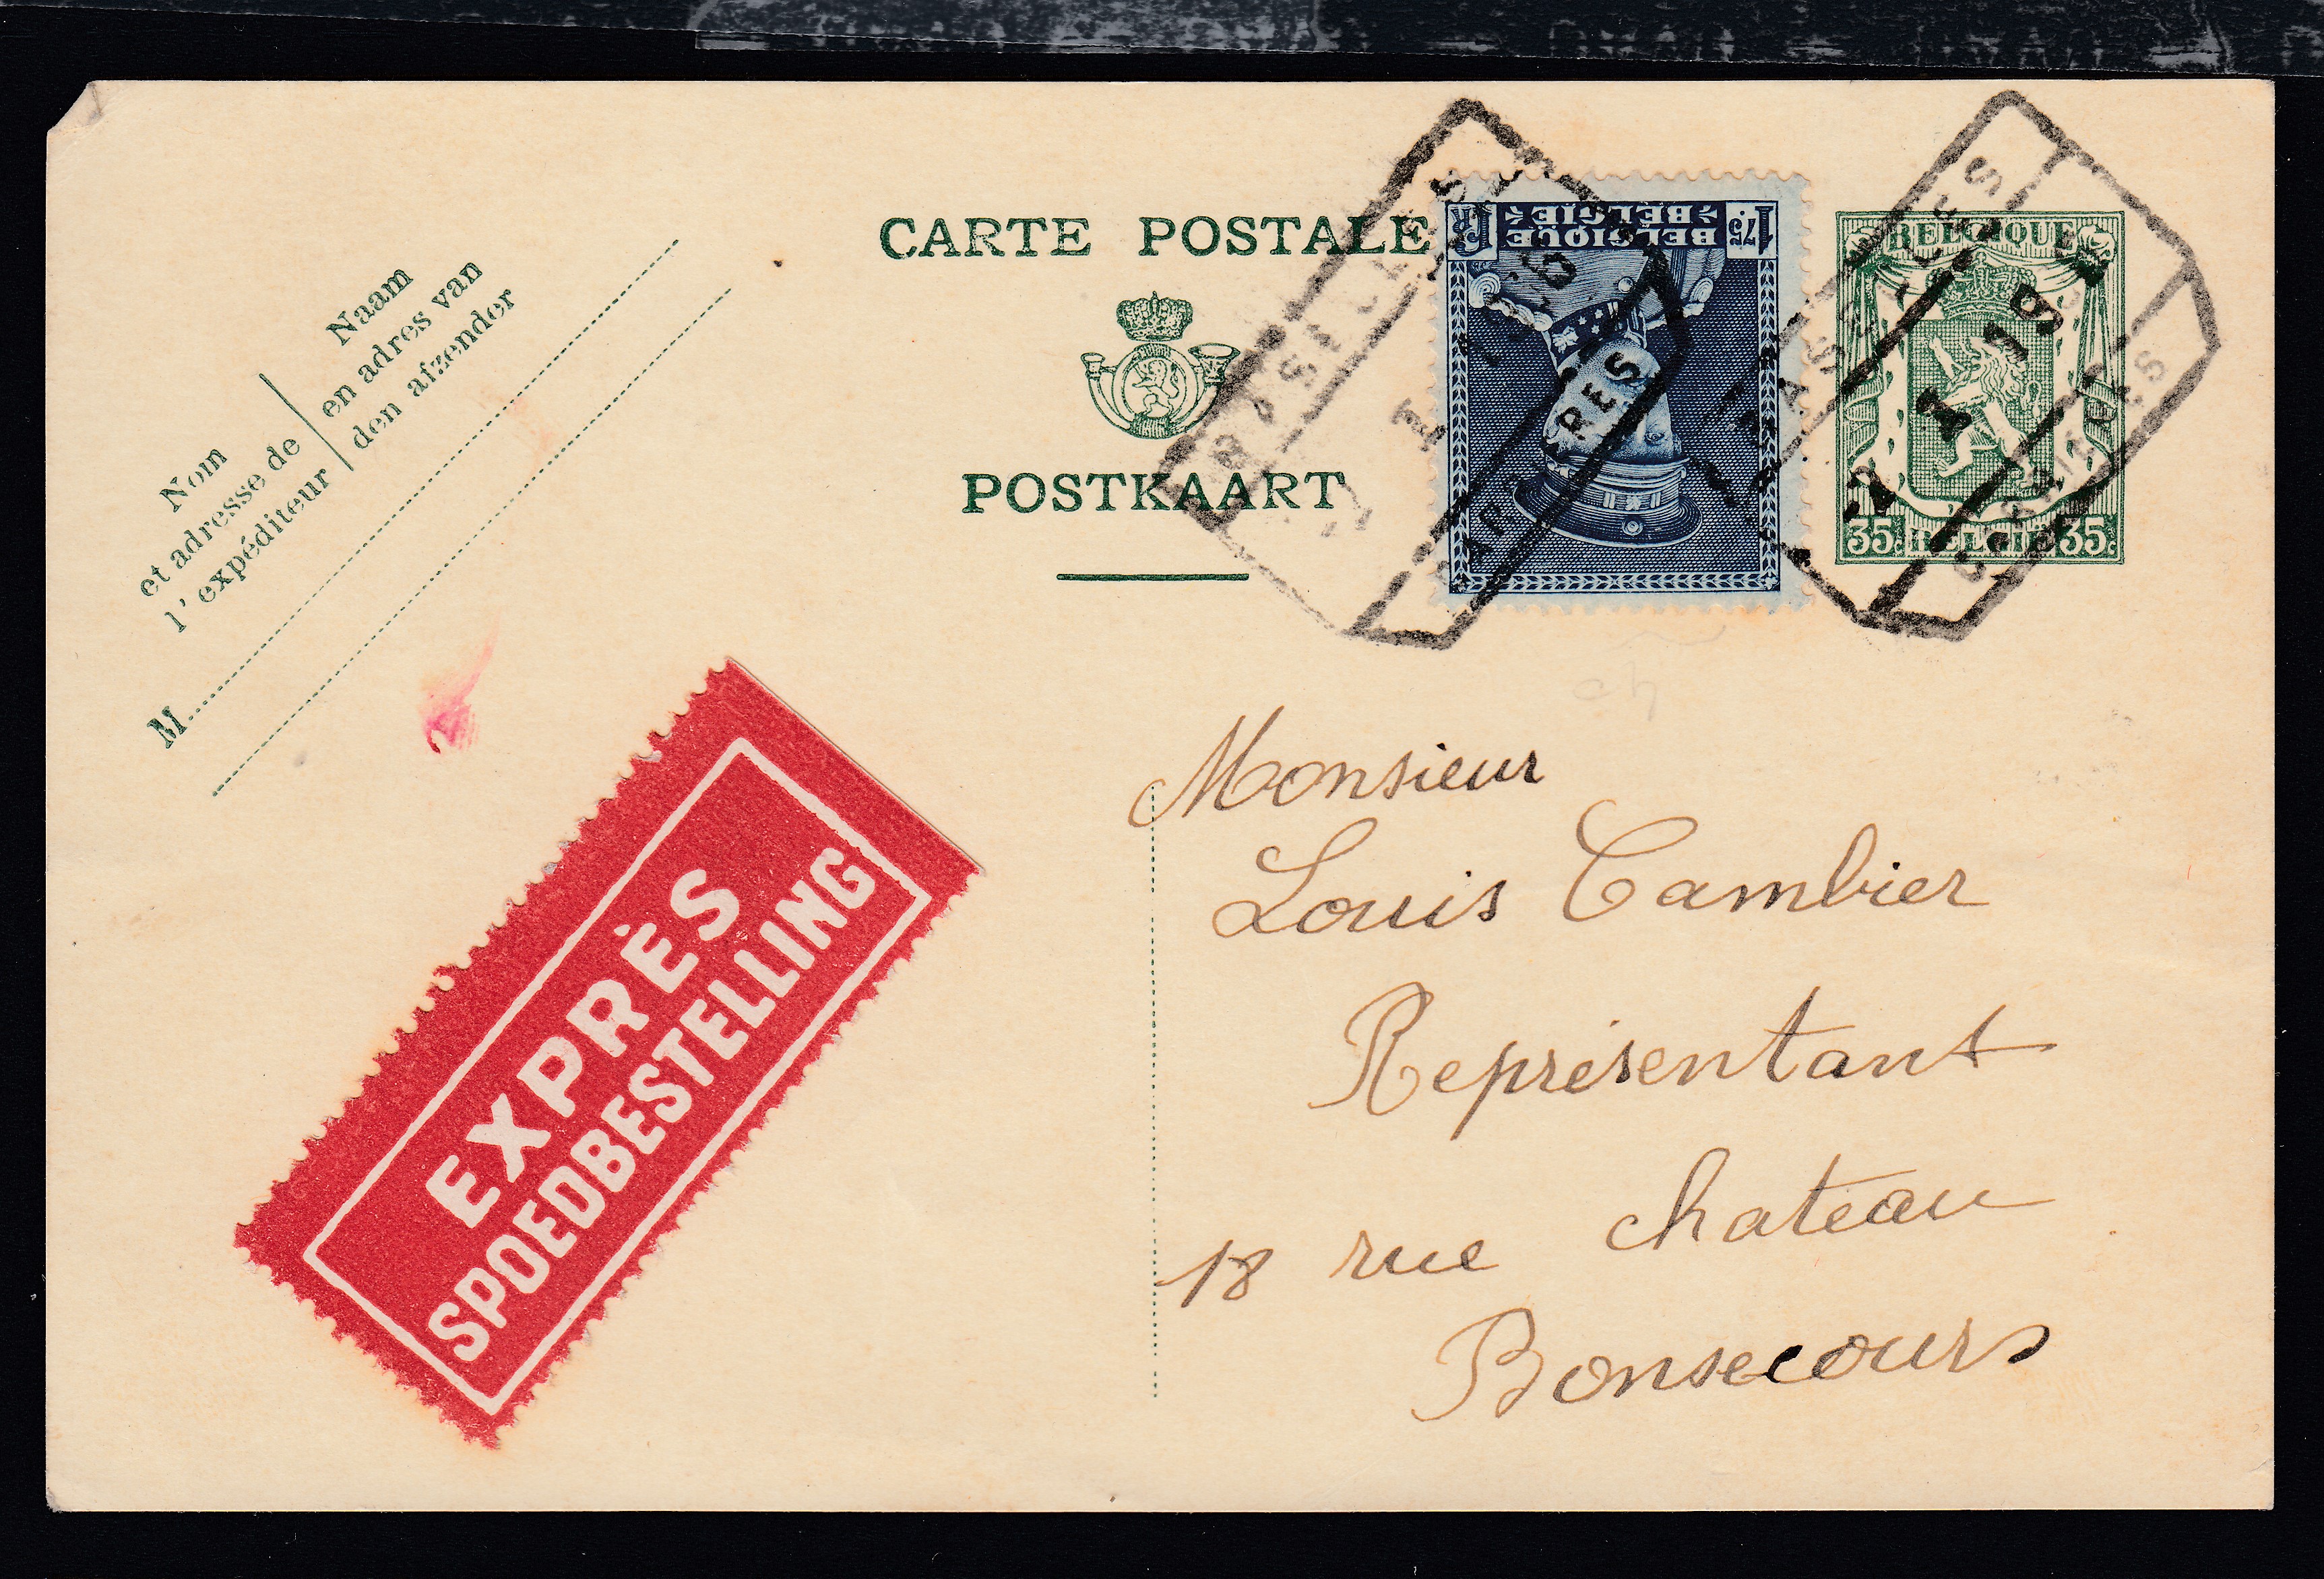 CARTE POSTALE
POSTKAART
Nom
et adresse de
l'expéditeur
Naam
en adres van
den afzender
M
1F75
BELGIQUE
BELGIË
BELGIQUE
35c BELGIË 35c
EXPRÈS
SPOEDBESTELLING
Monsieur
Louis Cambier
Représentant
18 rue chateau
Bonsecours